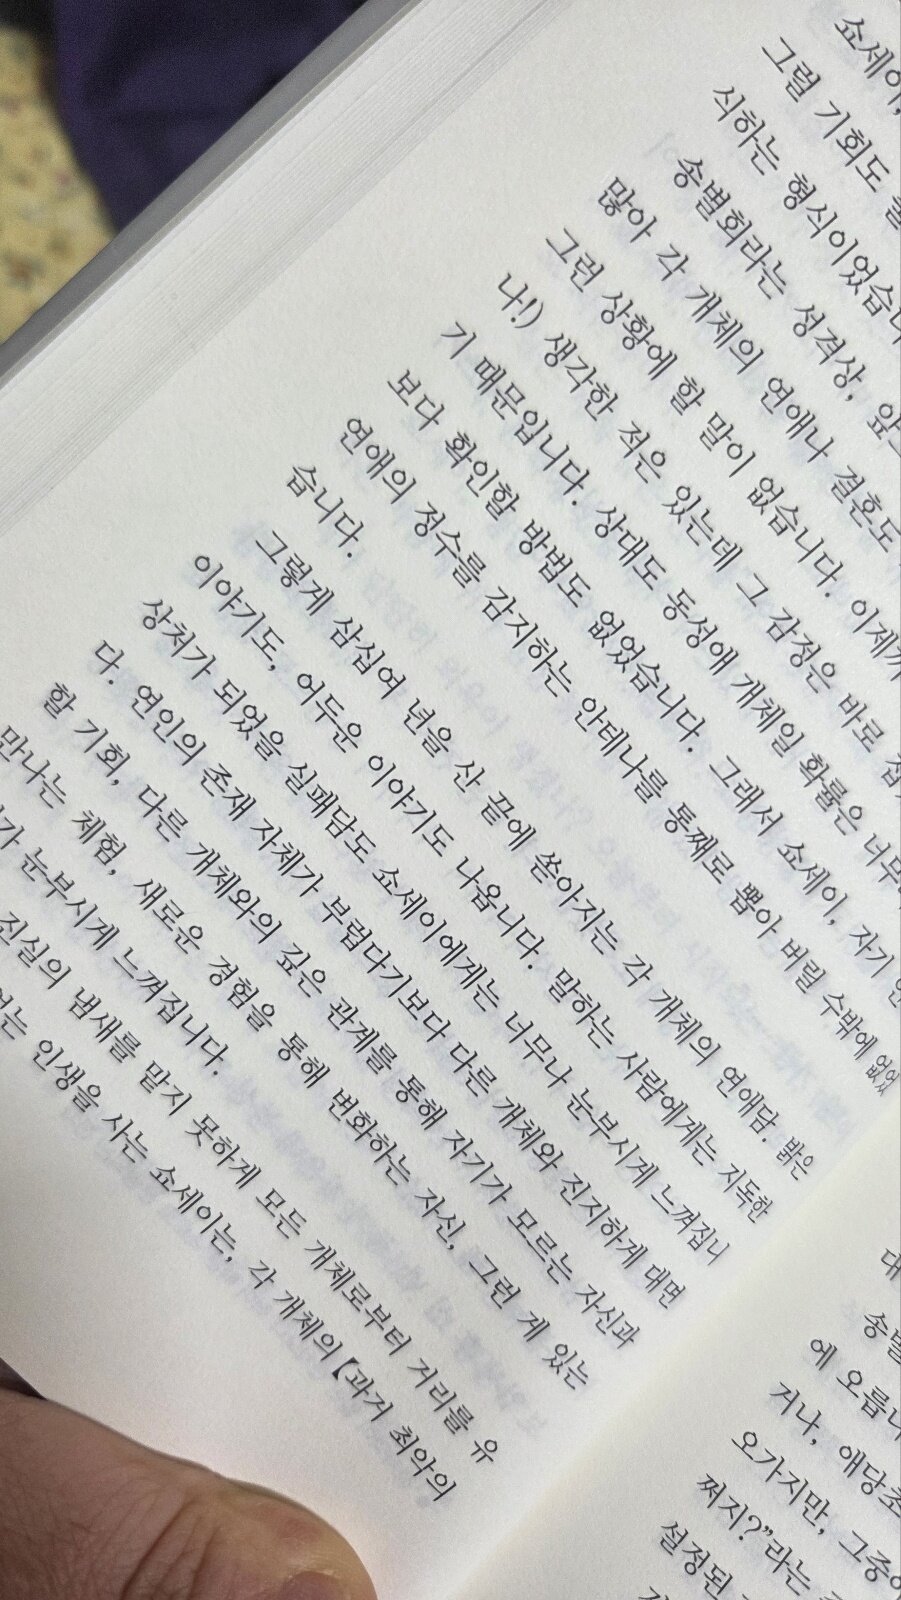 쇼세이,
그럴 기회도
식하는 형식이었습니
송별회라는 성격상,
많아 각 개체의 연애나 결혼도
그런 상황에 할 말이 없습니다. 이제까
나!) 생각한 적은 있는데 그 감정은 바로
기 때문입니다. 상대도 동성애 개체일 확률은 너무
보다 확인할 방법도 없었습니다. 그래서 쇼세이, 자기 안
연애의 정수를 감지하는 안테나를 통째로 뽑아 버릴 수밖에 없었
습니다.
그렇게 삼십여 년을 산 끝에 쏟아지는 각 개체의 연애담. 밝은
이야기도, 어두운 이야기도 나옵니다. 말하는 사람에게는 지독한
상처가 되었을 실패담도 쇼세이에게는 너무나 눈부시게 느껴집니
다. 연인의 존재 자체가 부럽다기보다 다른 개체와 진지하게 대면
할 기회, 다른 개체와의 깊은 관계를 통해 자기가 모르는 자신과
만나는 체험, 새로운 경험을 통해 변화하는 자신, 그런 게 있는
눈부시게 느껴집니다.
진실의 냄새를 맡지 못하게 모든 개체로부터 거리를 유
없는 인생을 사는 쇼세이는, 각 개체의 【과거 최악의
대
송별
에 오릅니
거나, 애당초
오가지만, 그중에
쩌지?”라는
설정된